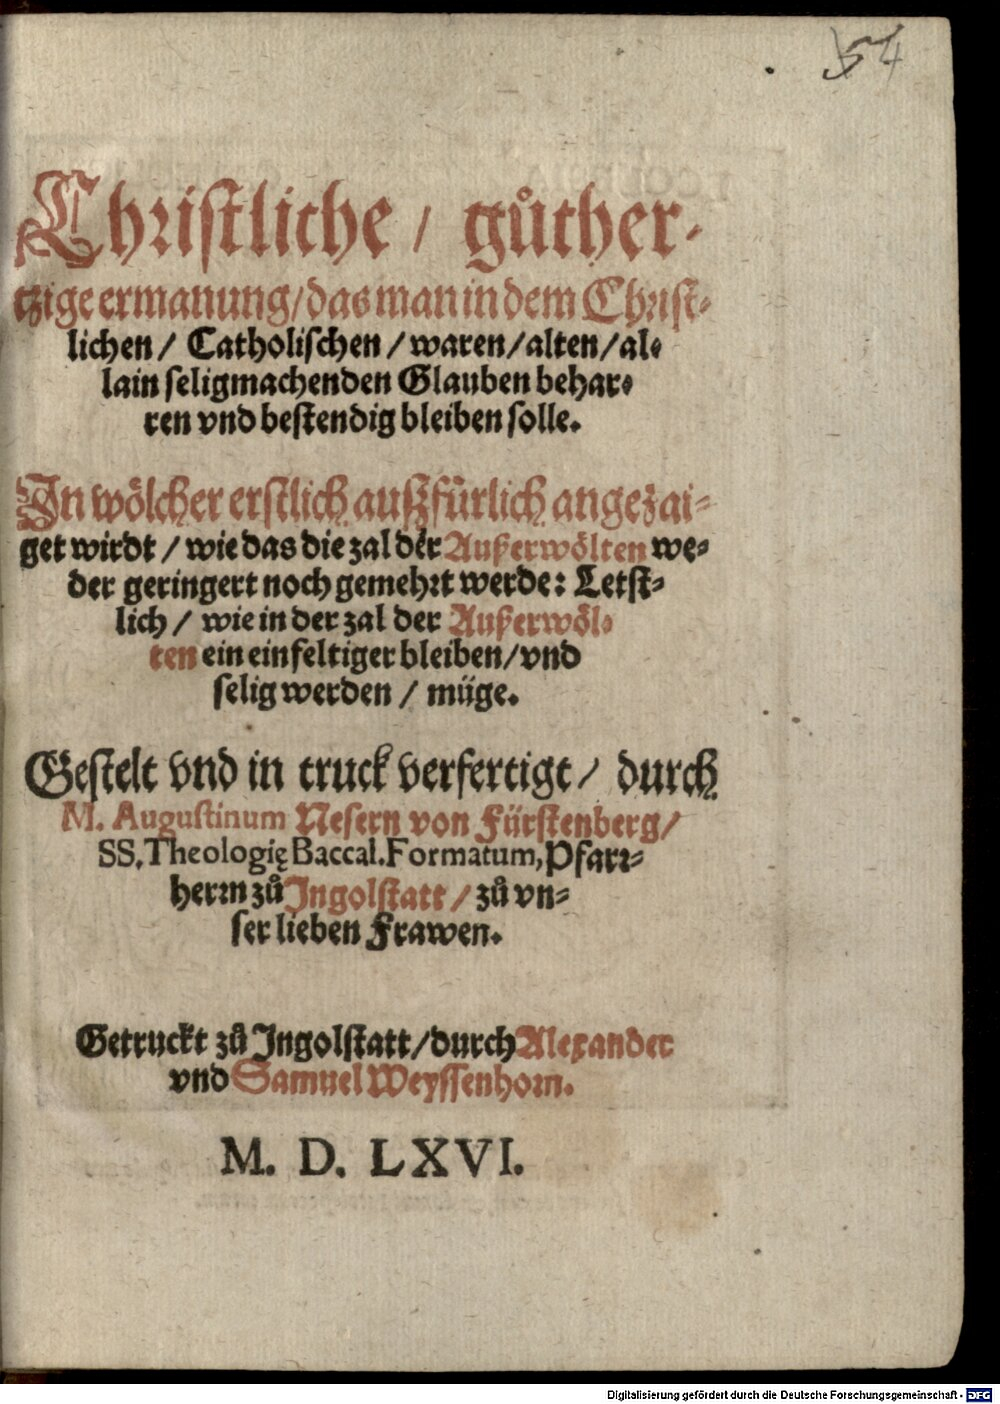 54
Christliche / gůther-
tzige ermanung / das man in dem Christ-
lichen / Catholischen / waren / alten / al-
lain seligmachenden Glauben behar-
ren vnd bestendig bleiben solle.
In wölcher erstlich außfürlich angezai-
get wirdt / wie das die zal der Außerwölten we-
der geringert noch gemehrt werde: Letst-
lich / wie in der zal der Außerwöl-
ten ein einfeltiger bleiben / vnd
selig werden / müge.
Gestelt vnd in truck verfertigt / durch
M. Augustinum Nesern von Fürstenberg /
SS. Theologię Baccal. Formatum, Pfarr-
herrn zů Ingolstatt / zů vn-
ser lieben Frawen.
Getruckt zů Ingolstatt / durch Alexander
vnd Samuel Weyssenhorn.
M. D. LXVI.
Digitalisierung gefördert durch die Deutsche Forschungsgemeinschaft - DFG